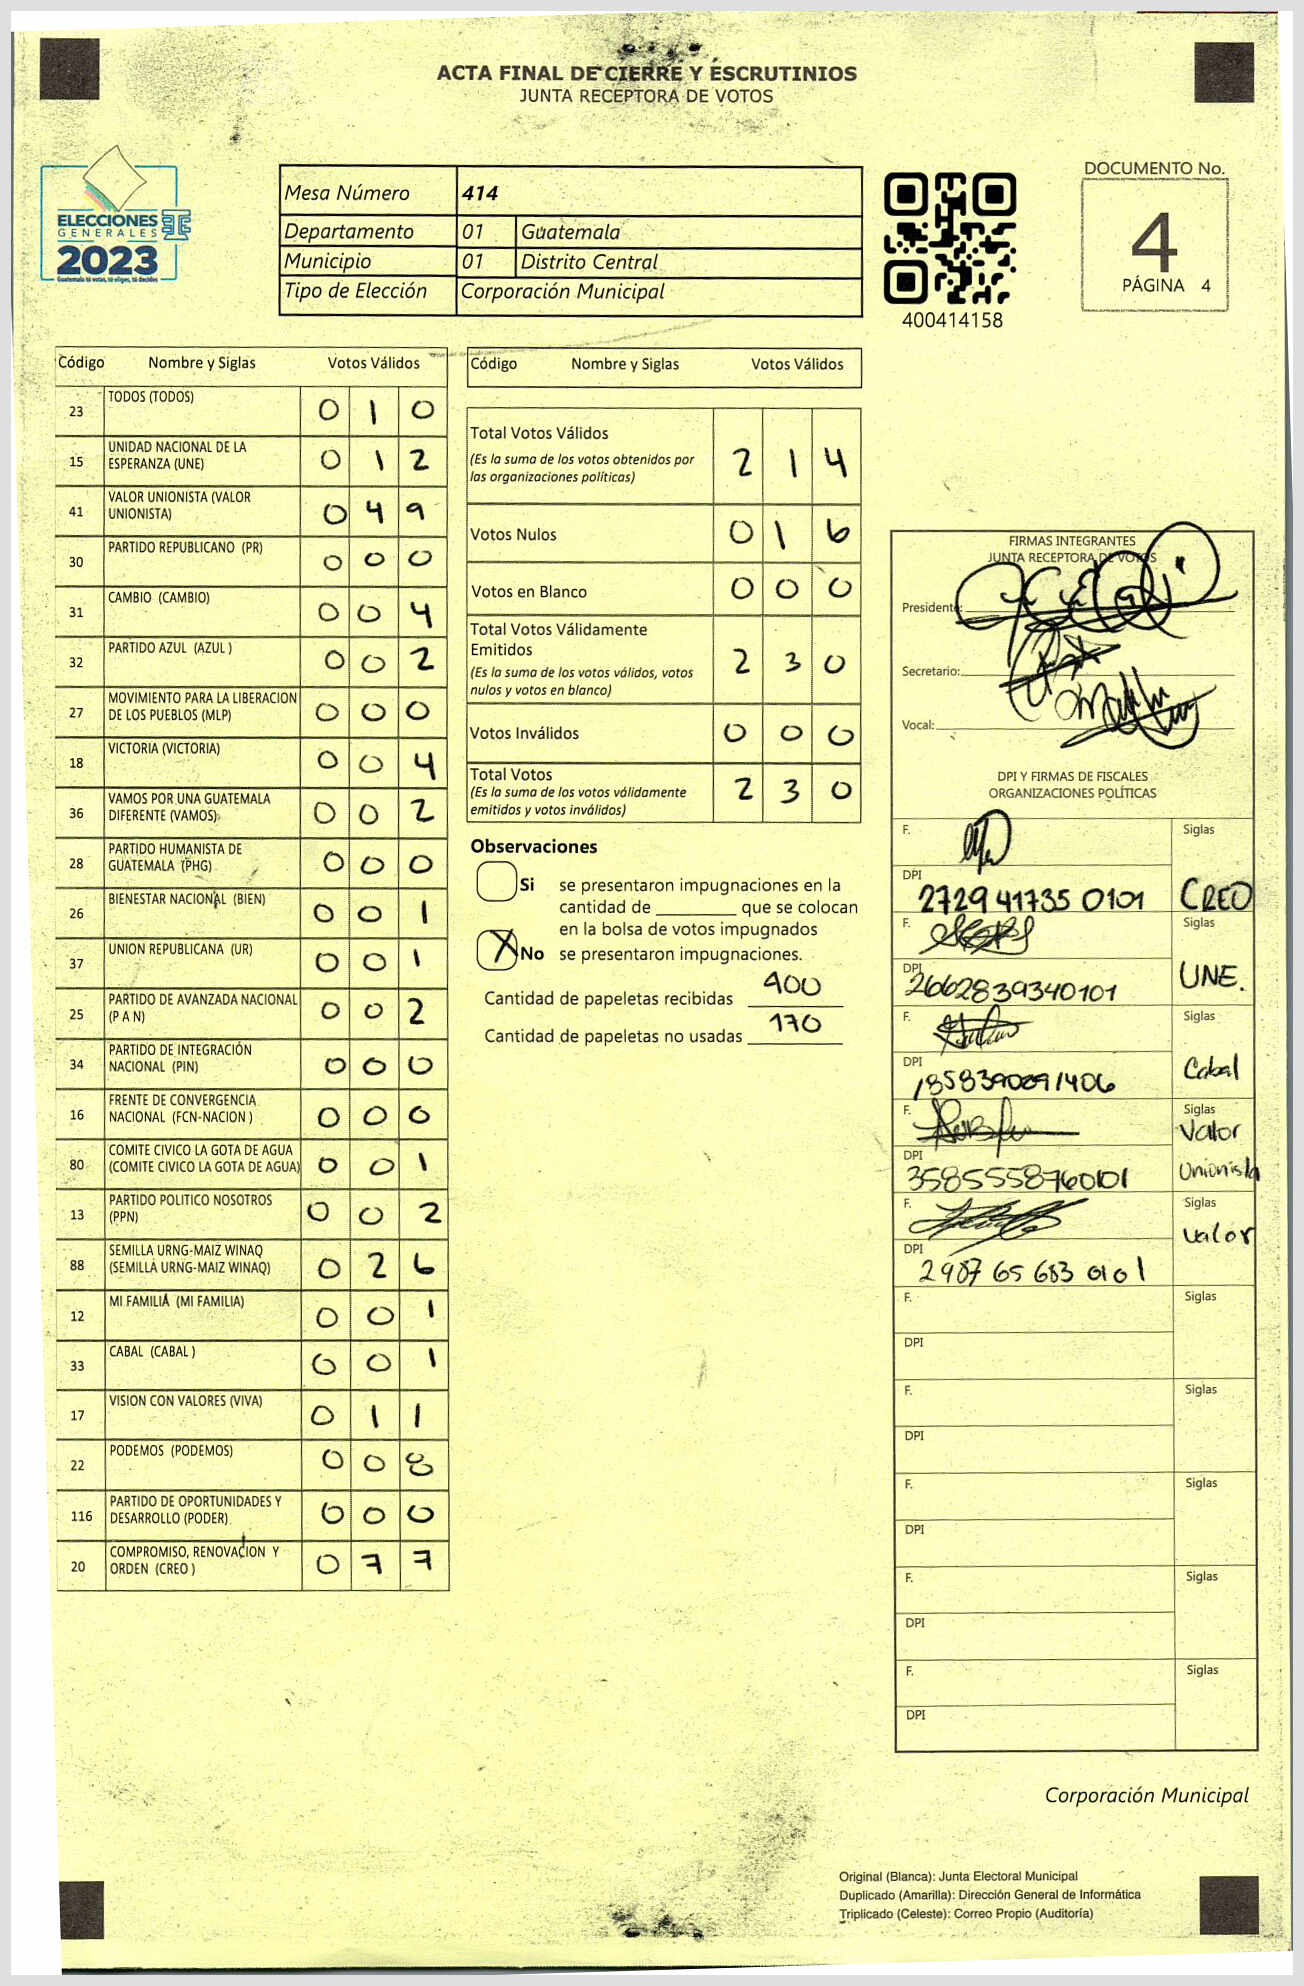 ACTA FINAL DE CIERRE Y ESCRUTINIOS
JUNTA RECEPTORA DE VOTOS
ELECCIONES
GENERALES
2023
Guatemala tú votas, tú eliges, tú decides
Mesa Número 414
Departamento 01 Guatemala
Municipio 01 Distrito Central
Tipo de Elección Corporación Municipal
400414158
DOCUMENTO No.
4
PÁGINA 4
Código Nombre y Siglas Votos Válidos
23 TODOS (TODOS) 0 1 0
15 UNIDAD NACIONAL DE LA
ESPERANZA (UNE) 0 1 2
41 VALOR UNIONISTA (VALOR
UNIONISTA) 0 4 9
30 PARTIDO REPUBLICANO (PR) 0 0 0
31 CAMBIO (CAMBIO) 0 0 4
32 PARTIDO AZUL (AZUL ) 0 0 2
27 MOVIMIENTO PARA LA LIBERACION
DE LOS PUEBLOS (MLP) 0 0 0
18 VICTORIA (VICTORIA) 0 0 4
36 VAMOS POR UNA GUATEMALA
DIFERENTE (VAMOS) 0 0 2
28 PARTIDO HUMANISTA DE
GUATEMALA (PHG) 0 0 0
26 BIENESTAR NACIONAL (BIEN) 0 0 1
37 UNION REPUBLICANA (UR) 0 0 1
25 PARTIDO DE AVANZADA NACIONAL
(P A N) 0 0 2
34 PARTIDO DE INTEGRACIÓN
NACIONAL (PIN) 0 0 0
16 FRENTE DE CONVERGENCIA
NACIONAL (FCN-NACION ) 0 0 0
80 COMITE CIVICO LA GOTA DE AGUA
(COMITE CIVICO LA GOTA DE AGUA) 0 0 1
13 PARTIDO POLITICO NOSOTROS
(PPN) 0 0 2
88 SEMILLA URNG-MAIZ WINAQ
(SEMILLA URNG-MAIZ WINAQ) 0 2 6
12 MI FAMILIA (MI FAMILIA) 0 0 1
33 CABAL (CABAL ) 0 0 1
17 VISION CON VALORES (VIVA) 0 1 1
22 PODEMOS (PODEMOS) 0 0 8
116 PARTIDO DE OPORTUNIDADES Y
DESARROLLO (PODER) 0 0 0
20 COMPROMISO, RENOVACION Y
ORDEN (CREO ) 0 7 7
Código Nombre y Siglas Votos Válidos
Total Votos Válidos
(Es la suma de los votos obtenidos por
las organizaciones políticas) 2 1 4
Votos Nulos 0 1 6
Votos en Blanco 0 0 0
Total Votos Válidamente
Emitidos
(Es la suma de los votos válidos, votos
nulos y votos en blanco) 2 3 0
Votos Inválidos 0 0 0
Total Votos
(Es la suma de los votos válidamente
emitidos y votos inválidos) 2 3 0
Observaciones
Si se presentaron impugnaciones en la
cantidad de ________ que se colocan
en la bolsa de votos impugnados
X No se presentaron impugnaciones.
Cantidad de papeletas recibidas 400
Cantidad de papeletas no usadas 170
FIRMAS INTEGRANTES
JUNTA RECEPTORA DE VOTOS
Presidente:
Secretario:
Vocal:
DPI Y FIRMAS DE FISCALES
ORGANIZACIONES POLÍTICAS
F. Siglas
DPI 2729 41735 0101 CREO
F. Siglas
DPI 2662839340101 UNE.
F. Siglas
DPI 1858390091406 Cabal
F. Siglas
Valor
DPI 3585558760101 Unionista
F. Siglas
Valor
DPI 2987 65 683 0101
F. Siglas
DPI
F. Siglas
DPI
F. Siglas
DPI
F. Siglas
DPI
F. Siglas
DPI
Corporación Municipal
Original (Blanca): Junta Electoral Municipal
Duplicado (Amarilla): Dirección General de Informática
Triplicado (Celeste): Correo Propio (Auditoría)